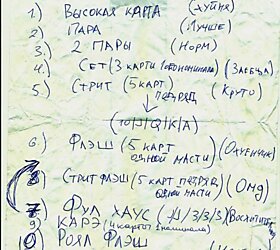 1.) ВЫСОКАЯ КАРТА (ХУЙНЯ)
2.) ПАРА (ЛУЧШЕ)
3.) 2 ПАРЫ (НОРМ)
4.) СЕТ (3 КАРТЫ 1 номинала) (ЗАЕБЦА)
5.) СТРИТ (5 КАРТ ПОДРЯД) (КРУТО)
(10|J|Q|K|A)
6.) ФЛЭШ (5 КАРТ ОДНОЙ МАСТИ)
8) СТРИТ ФЛЭШ (5 КАРТ ПОДРЯД ОДНОЙ МАСТИ) (OMG)
7) ФУЛ ХАУС
9 КАРЭ (4 карты 1 номинала)
10) РОЯЛ ФЛЭШ